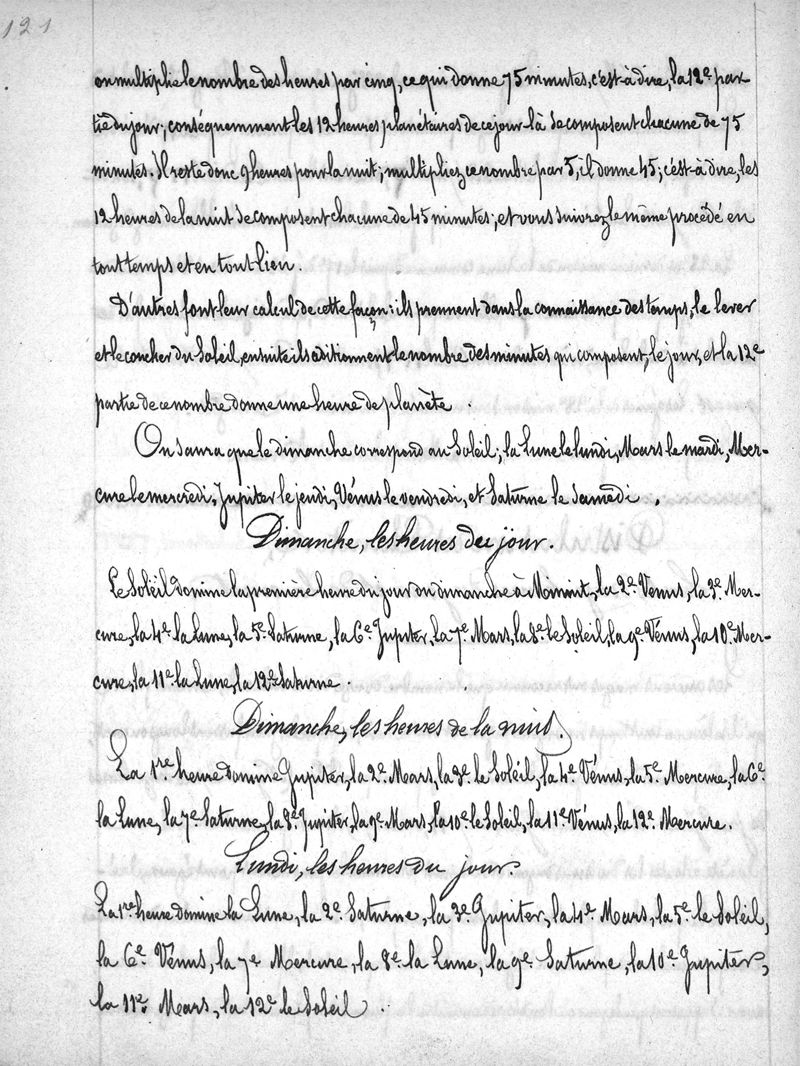 121
on multiplie le nombre des heures par cinq, ce qui donne 75 minutes, c'est-à dire, la 12e par
tie du jour; conséquemment les 12 heures planétaires de ce jour là se composent chacune de 75
minutes. Il reste donc 9 heures pour la nuit; multipliez ce nombre par 5, il donne 45; c'est-à dire, les
12 heures de la nuit se composent chacune de 45 minutes; et vous suivrez le même procédé en
tout temps et en tout lieu.
D'autres font leur calcul de cette façon: ils prennent dans la connaissance des temps, le lever
et le coucher du Soleil, ensuite ils additionnent le nombre des minutes qui composent, le jour, et la 12e
partie de ce nombre donne une heure de planète.
On saura que le dimanche correspond au Soleil; la Lune le lundi, Mars le mardi, Mer-
cure le mercredi, Jupiter le jeudi, Vénus le vendredi, et Saturne le Samedi.
Dimanche, les heures du jour.
Le Soleil domine la première heure du jour du dimanche à Minuit, la 2e Venus, la 3e Mer-
cure, la 4e la Lune, la 5e Saturne, la 6e Jupiter, la 7e Mars, la 8e le Soleil, la 9e Vénus, la 10e Mer-
cure, la 11e la Lune, la 12e Saturne.
Dimanche, les heures de la nuit.
La 1re heure domine Jupiter, la 2e Mars, la 3e le Soleil, la 4e Vénus, la 5e Mercure, la 6e
la Lune, la 7e Saturne, la 8e Jupiter, la 9e Mars, la 10e le Soleil, la 11e Vénus, la 12e Mercure.
Lundi, les heures du jour.
La 1re heure domine la Lune, la 2e Saturne, la 3e Jupiter, la 4e Mars, la 5e le Soleil,
la 6e Vénus, la 7e Mercure, la 8e la Lune, la 9e Saturne, la 10e Jupiter,
la 11e Mars, la 12e le Soleil.